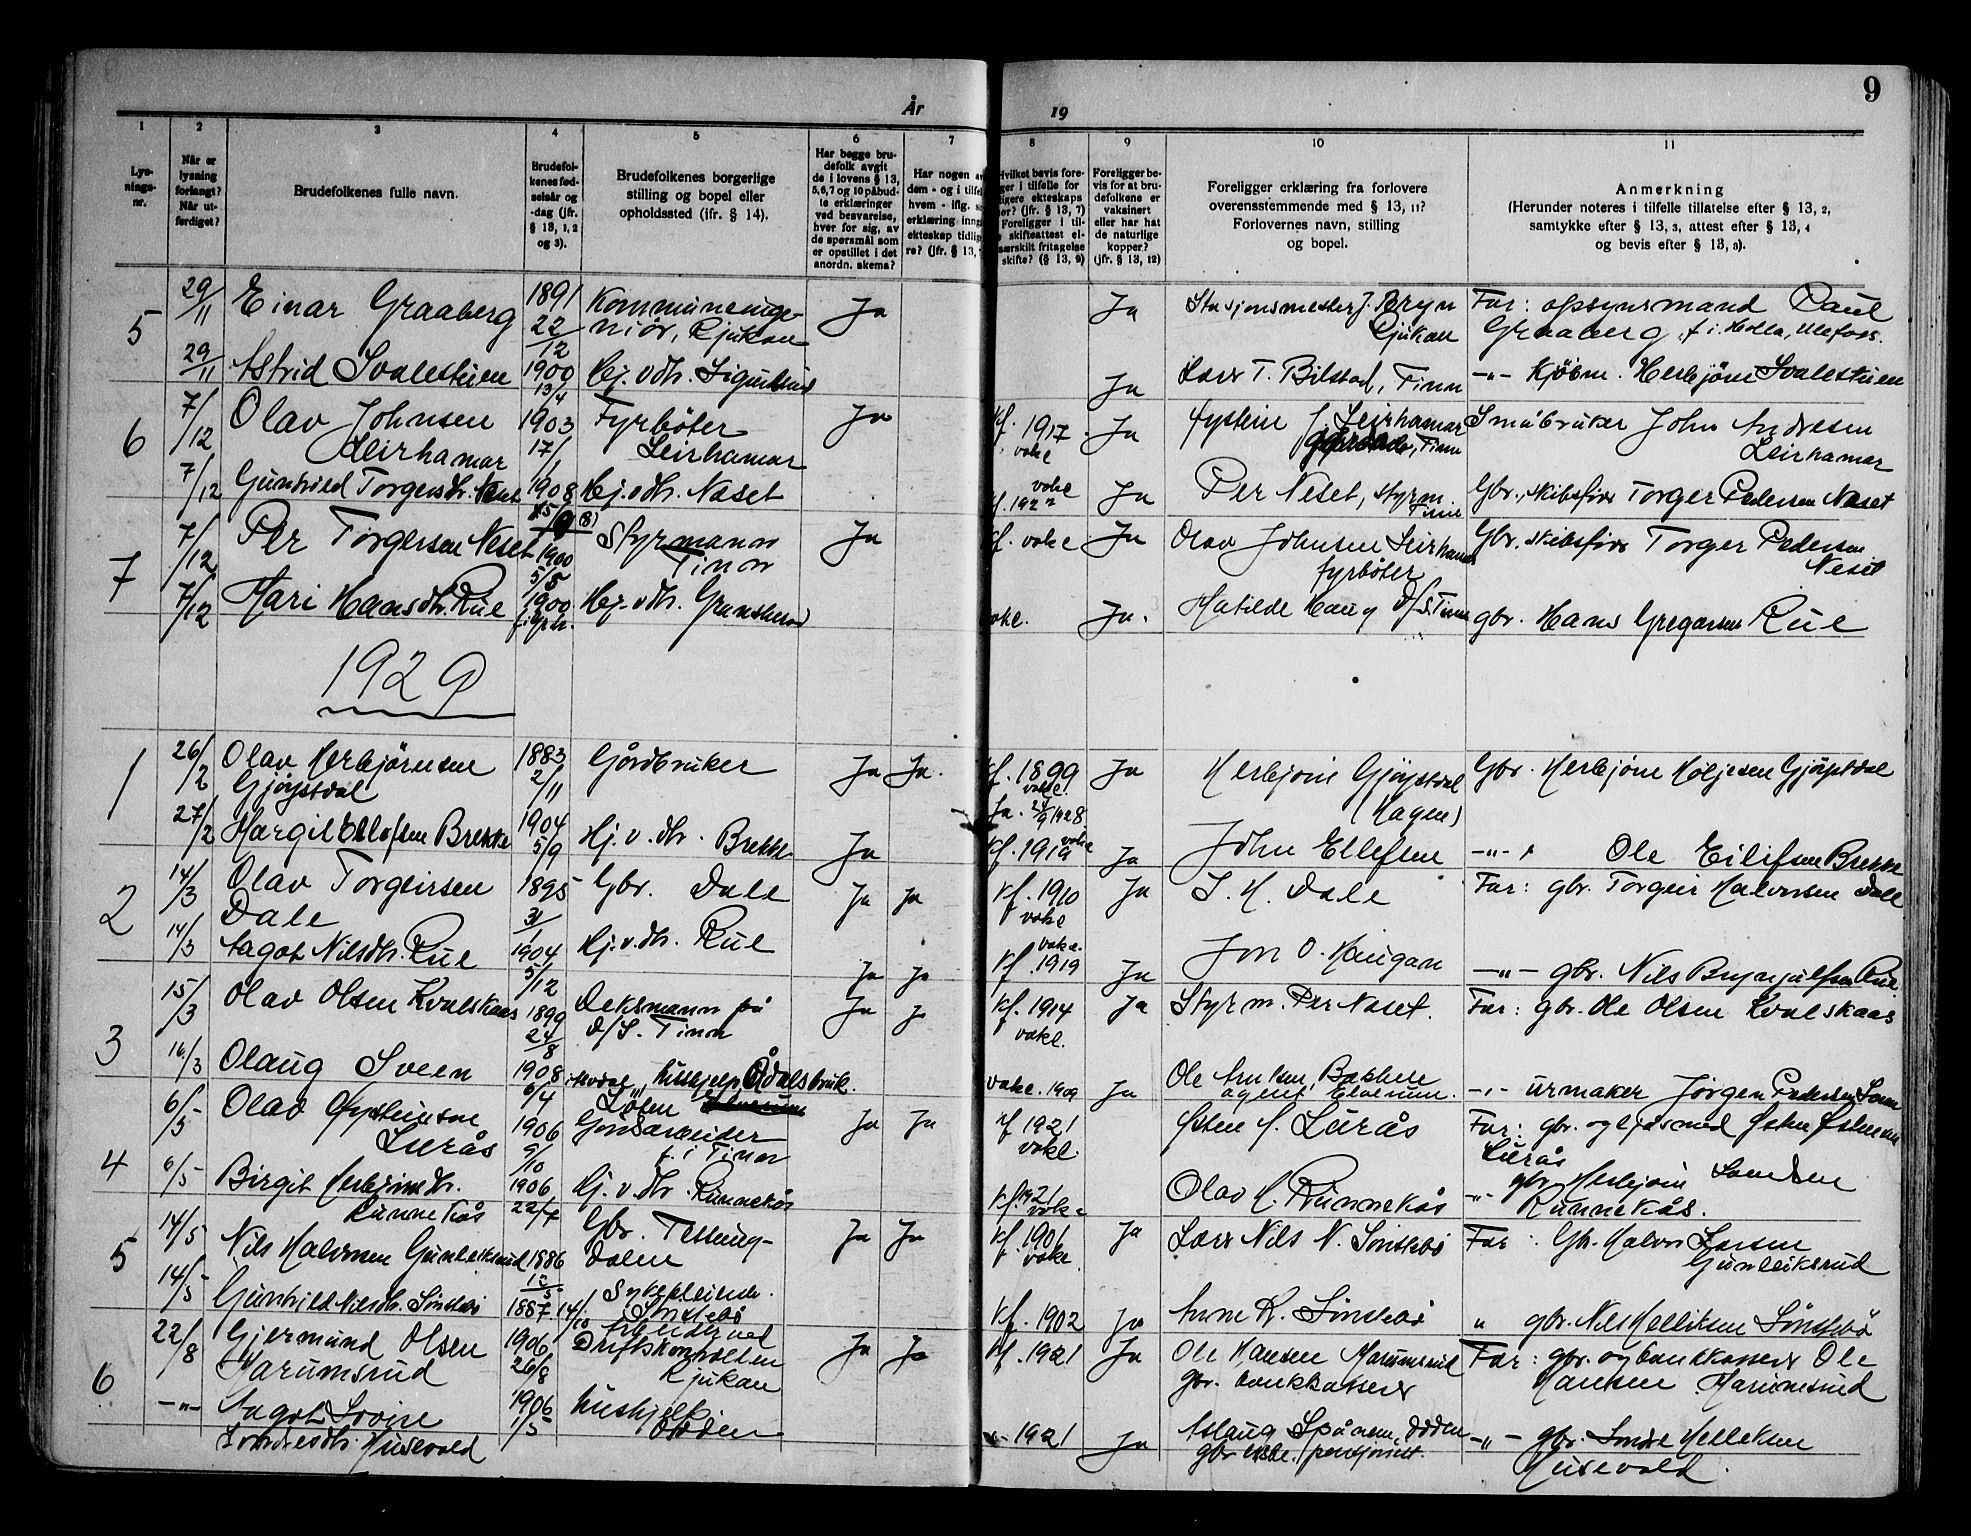 9
År 19
1
Lys-
nings-
nr.
2
Når er
lysning
forlangt?
Når ut-
ferdiget?
3
Brudefolkenes fulle navn.
4
Brudefol-
kenes fød-
selsår og
-dag (jfr.
§ 13, 1, 2
og 3).
5
Brudefolkenes borgerlige
stilling og bopel eller
opholdssted (jfr. § 14).
6
Har begge bru-
defolk avgit
de i lovens § 13,
5, 6, 7 og 10 påbud-
te erklæringer
ved besvarelse,
hver for sig, av
de spørsmål som
er opstillet i det
anordn. skema?
7
Har nogen av
dem - og i tilfel
hvem - iflg. s
erklæring inng
ekteskap tidlig
re? (jfr. § 13,
8
Hvilket bevis fore-
ger i tilfelle for
ligere ekteskaps
er? (jfr. § 13, 7)
Foreligger i til-
skifteattest el-
særskilt fritagelse
skifte? (§ 13, 9)
9
Foreligger be-
vis for at bru-
defolkene er
vaksinert
eller har hat
de naturlige
kopper?
(jfr. § 13, 12)
10
Foreligger erklæring fra forlovere
overensstemmende med § 13, 11?
Forlovernes navn, stilling
og bopel.
11
Anmerkning
(Herunder noteres i tilfelle tillatelse efter § 13, 2,
samtykke efter § 13, 3, attest efter § 13, 4
og bevis efter § 13, 8).
5 29/11 Einar Graaberg 1891 22/12 Kommuneinge-
niör, Rjukan Ja Ja Stasjonsmester J. Bryn
Rjukan Far: opsynsmand Paul
Graaberg, f. i Holla, Ulefoss.
29/11 Astrid Svalestuen 1900 13/4 Hj. v dh. Ja Lars T. Bilstad, Tinn -"- Kjøbm. Herbjörn Svalestuen
6 7/12 Olav Johnsen
Leirhamar 1903 17/1 Fyrböter
Leirhamar Ja Kf. 1917
vakc Ja Øystein J. Leirhamar
Tinn Småbruker John Andresen
Leirhamar
7/12 Gunhild Torgersdtr. Neset 1908 Hj. v dh. Neset vakc
Kf. 1922 Ja Per Neset, styrm.
Tinn Gbr., skibsför Torger Pedersen Neset
7 7/12 Per Torgersen Neset 1900 5/5 Styrmann
Tinn Ja Kf. vakc Ja Olav Johnsen Leirhamar
fyrböter Gbr. skibsför Torger Pedersen
Neset
7/12 Mari Hansdtr. Rue 1900 Hj. v dh. Gransherad vakc. Ja. Matilde Haug D/S. Tinn gbr. Hans Gregarsen Rue
1929
1 26/2 Olav Herbjörnsen
Gjöystdal 1883 2/11 Gårdbruker Ja Ja. Kf. 1899
vakc.
Ja. 24/9 1928 Ja Herbjörn Gjöystdal
(Hagen) Gbr. Herbjörn Höljesen Gjöystdal
27/2 Margit Brekke 1904 5/9 Hj. v. dh. Brekke Ja vakc
Kf. 1919 Ja John Ellefsen -"- Ole Eilifsen Brekke
2 14/3 Olav Torgeirsen
Dale 1895 3/1 Gbr. Dale Ja Ja Kf. 1910
vakc Ja T. H. Dale Far: gbr. Torgeir Halvorsen Dale
14/3 Aagot Nilsdtr. Rue 1904 5/12 Hj. v. dh. Rue Ja Ja vakc.
Kf. 1919 Ja Jon O. Haugan -"- gbr. Nils Brynjulfsen Rue.
3 15/3 Olav Olsen Kvalskaas 1899 24/8 Deksmann på
D/S. Tinn Ja Ja Kf. 1914
vakc. Ja Styrm. Per Neset. Far: gbr. Ole Olsen Kvalskaas
16/3 Olaug Sveen 1908 6/4 hushjelp Ådalsbruk.
Löten vakc. 1909 Ja Ole Bakken
agent Elverum. -"- urmaker Jörgen Pedersen Sveen
4 6/5 Olav Øysteinsen
Lurås 1906 9/10 Gårdsarbeider
f. i Tinn Ja Ja Kf 1921
vakc. Østen Lurås Far: gbr. og Østen Østensen
Lurås
6/5 Birgit Herbjörnsdtr.
Runnekås 1906 22/7 Hj. v. dh. Runnekås Kf. 1921
vakc Olav H. Runnekås -"- gbr. Herbjörn
Runnekås.
5 14/5 Nils Halvorsen Gunleiksrud 1886 Gbr. Tessung-
dalen Ja Ja Kf. 1901
vakc. Ja Lars Nils N. Sönstebö Far: Gbr. Halvor Larsen
Gunleiksrud
14/5 Gunhild Nilsdtr. Sönstebö 1887 14/10 Sykepleierske.
Sönstebö Kf. 1902 Ja Anne K. Sönstebö " gbr. Nils Helliksen Sönstebö
6 22/8 Gjermund Olsen
Harumsrud 1906 26/8 Arbeider ved
Driftskontrollen
Rjukan Ja Ja Kf. 1921 Ja Ole Hansen Harumsrud
gbr. bankkasserer Far: gbr. og bankkasserer Ole
Hansen Harumsrud
-"- Aagot Lovise
Sondresdtr. Husevold 1906 1/5 hushjelp
Ødden 1921 Ja Aslaug Spånem, Ødden
gbr. -"- gbr. Sondre Helleksen
Husevold.